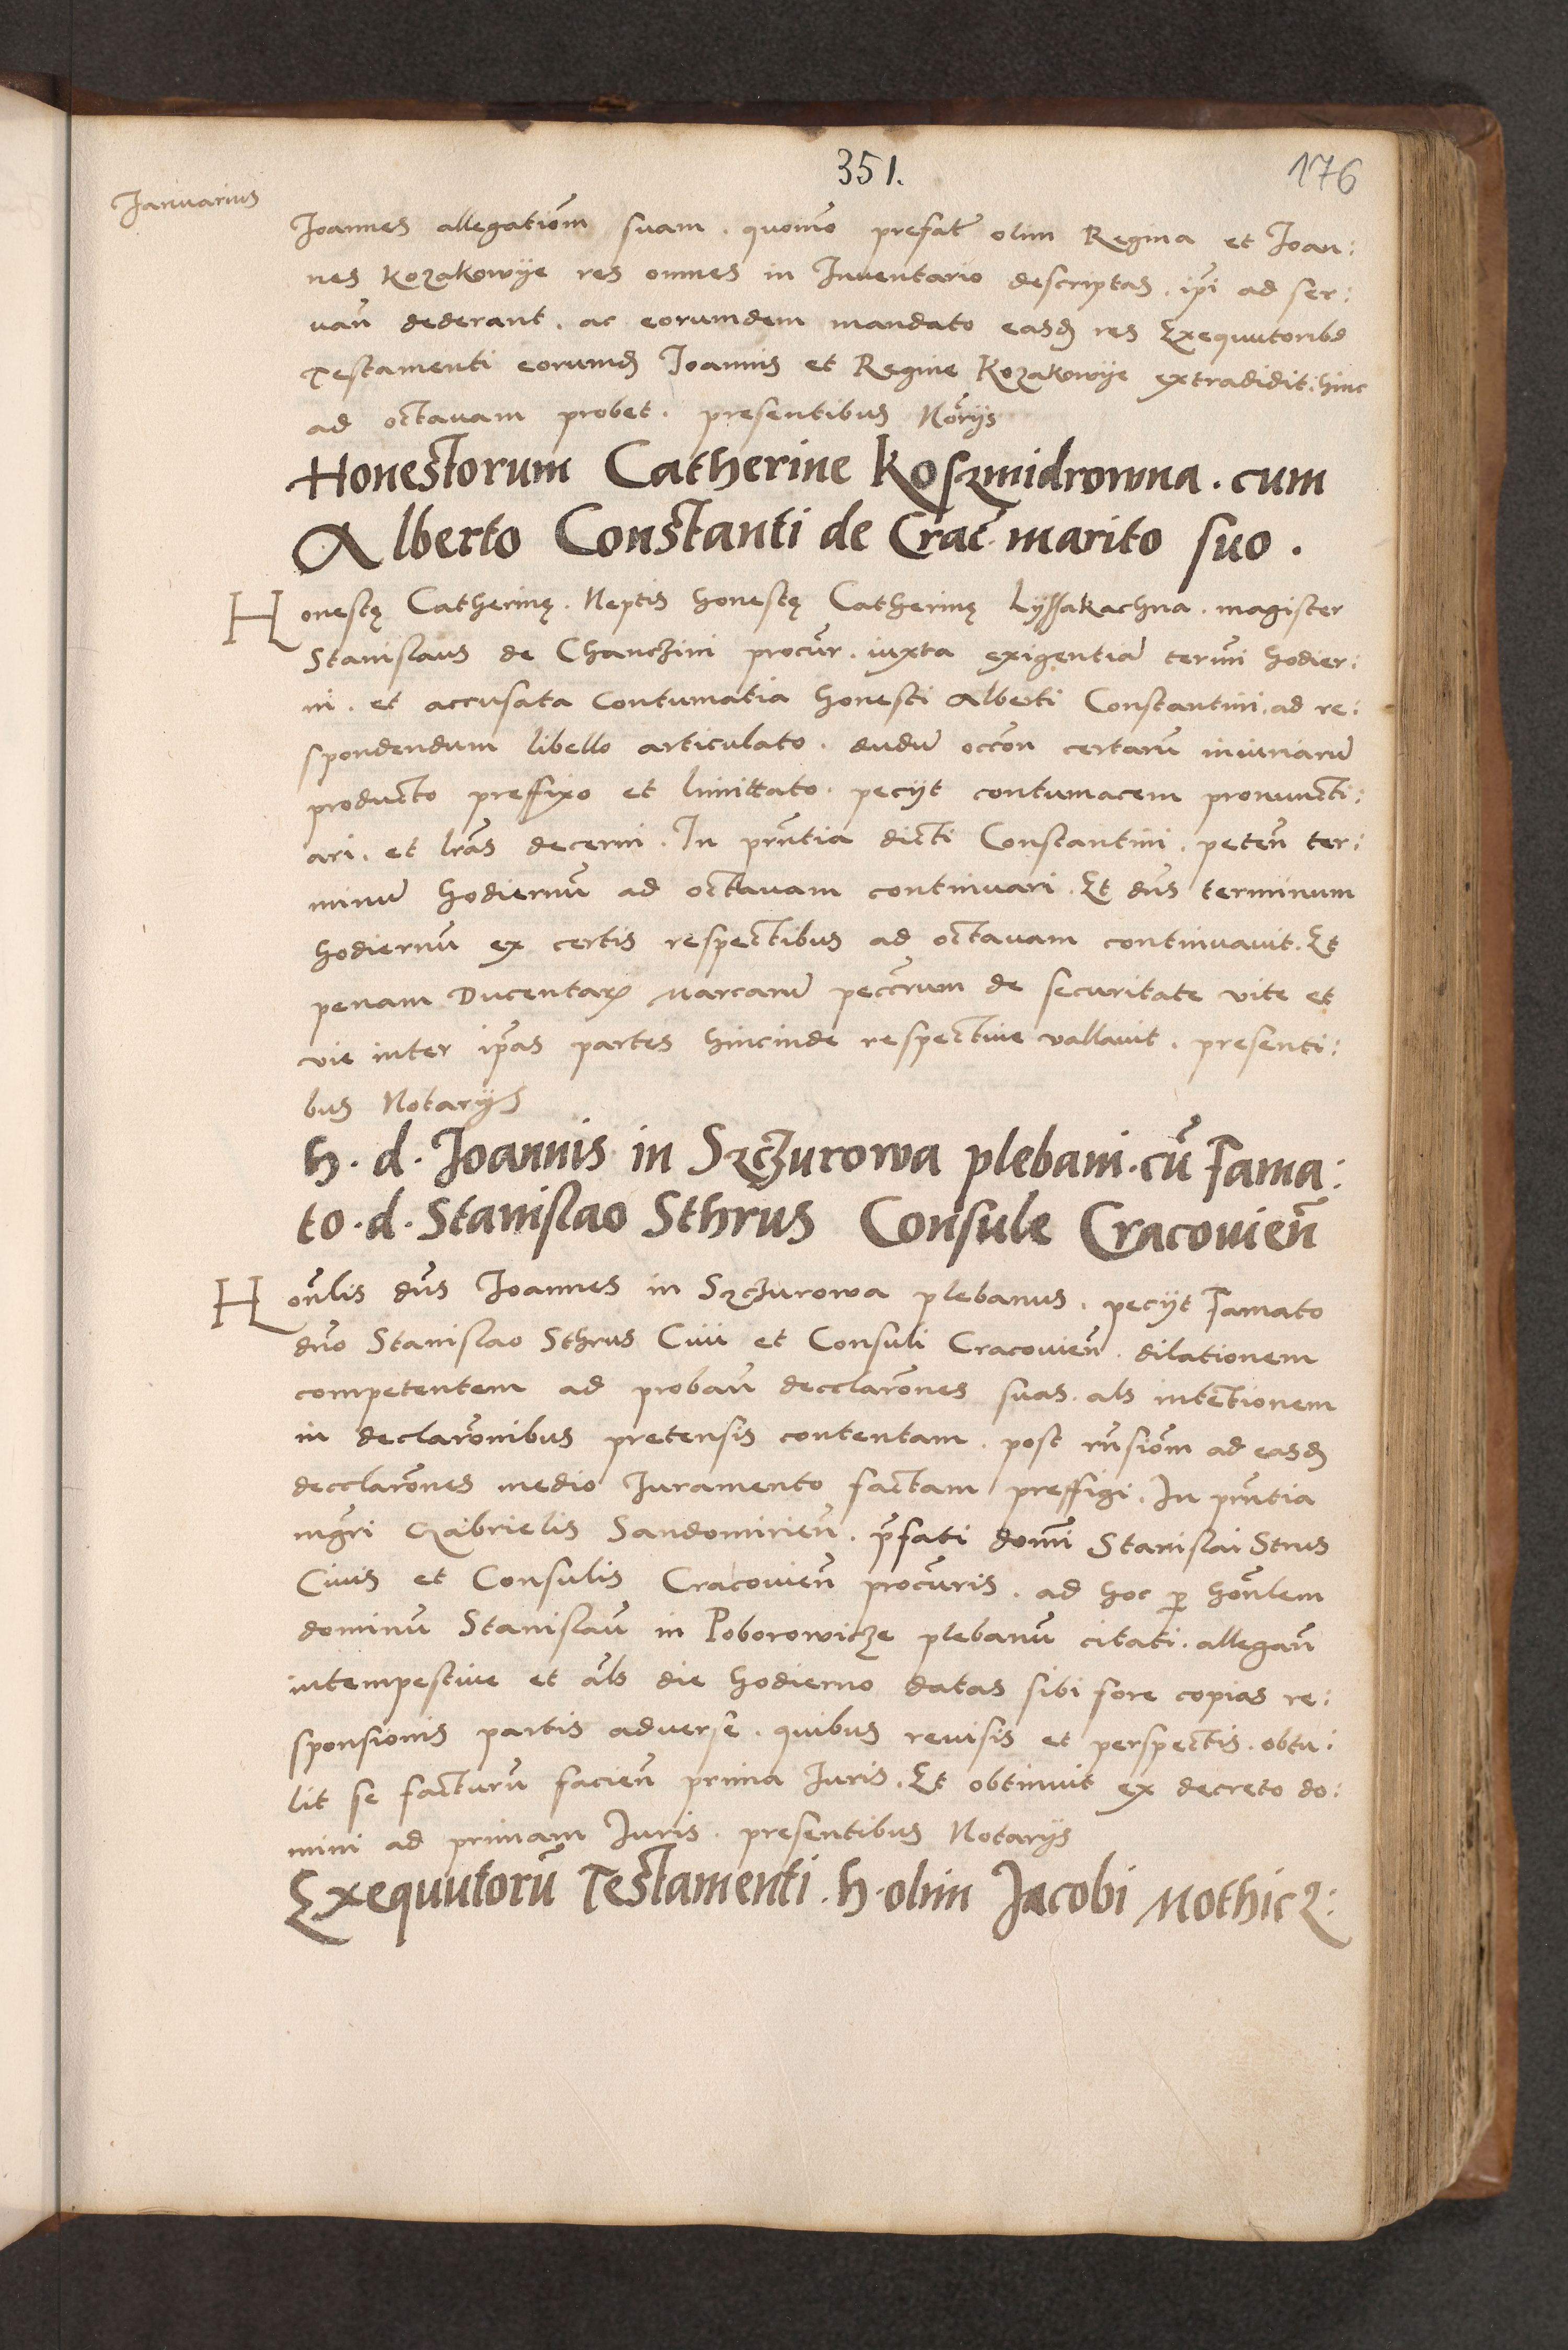 351.
176
Januarius
Joannes allegatiõm suam . quomo prefat̃ olim Regina et Joan:
nes Kozakowije res omnes in Inventario descriptas . ip̃i ad ser:
uañ dederant . ac eorumdem mandato easdꝫ res Exequutoribꝰ
Testamenti eorumdꝫ Joannis et Regine Kozakowije extradidit: hinc
ad octauam probet . presentibus Nõrijs
Honestorum Catherine Koszmidrowna . cum
Alberto Constanti de Crac̃ marito suo .
Honestę Catherinę . Neptis honestę Catherinę Lyssakachna . magister
Stanislaus de Chanczini procũr . iuxta exigentiã term̃i hodier:
ni . et accusata Contumatia honesti Alberti Constantini . ad re:
spondendum libello articulato . dudũ occõn certarũ iniuriarũ
producto preffixo et limittato . pecijt contumacem pronuncti:
ari . et lr̃as decerni . In pñtia dicti Constantini . peteñ ter:
minũ hodiernũ ad octauam continuari . Et dñs terminum
hodiernũ ex certis respectibus ad octauam continuauit . Et
penam Ducentaꝝ Marcarũ peccr̃um de securitate vite et
vie inter ip̃as partes hincinde respectiue vallauit . presenti:
bus Notarijs
h . d . Joannis in Szczurowa plebani . cũ Fama:
to . d . Stanislao Sthrus Consule Cracouieñ
Honĩlis dñs Joannes in Szczurowa plebanus . pecijt Famato
dño Stanislao Sthrus Ciui et Consuli Cracouieñ . dilationem
competentem ad probañ decclarõnes suas . als intẽtionem
in declarõnibus pretensis contentam . post rñsiõm ad easdꝫ
decclarõnes medio Juramento factam preffigi . In pñtia
mgr̃i Gabrielis Sandomirieñ . p̃fati domĩ Stanislai Strus
Ciuis et Consulis Cracouieñ procũris . ad hoc ꝑ honĩlem
dominũ Stanislaũ in Poborowicze plebanũ citati . allegañ
intempestiue et als̃ die hodierno datas sibi fore copias re:
sponsionis partis aduerse . quibus reuisis et perspectis . obtu:
lit se facturũ facieñ prima Juris . Et obtinuit ex decreto do:
mini ad primam Juris . presentibus Notarijs
Exequutorũ Testamenti . h . olim Jacobi Mothicz: